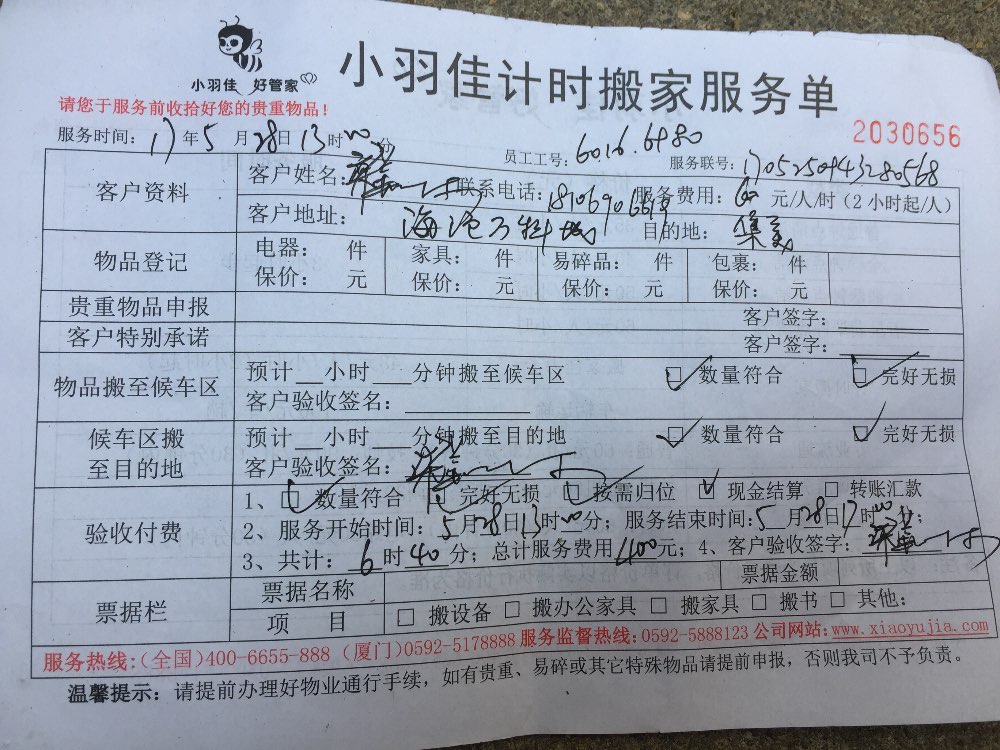 小羽佳 好管家
小羽佳计时搬家服务单
请您于服务前收拾好您的贵重物品！
2030656
服务时间：17年5月28日13时00分 员工工号：6016.6480 服务联号：1705250943280568
客户资料 客户姓名： 联系电话： 服务费用：60元/人/时（2小时起/人）
客户地址：海沧万科城 目的地：集美
物品登记 电器： 件 家具： 件 易碎品： 件 包裹： 件
保价： 元 保价： 元 保价： 元 保价： 元
贵重物品申报 客户签字：
客户特别承诺 客户签字：
物品搬至候车区 预计__小时___分钟搬至候车区 □ 数量符合 □ 完好无损
客户验收签名：
候车区搬至目的地 预计__小时___分钟搬至目的地 □ 数量符合 □ 完好无损
客户验收签名：
验收付费 1、□ 数量符合 □ 完好无损 □ 按需归位 □ 现金结算 □ 转账汇款
2、服务开始时间：5月28日13时00分；服务结束时间：5月28日17时 分；
3、共计：6时40分；总计服务费用400元；4、客户验收签字：
票据栏 票据名称 票据金额
项 目 □ 搬设备 □ 搬办公家具 □ 搬家具 □ 搬书 □ 其他：
服务热线：(全国)400-6655-888 (厦门)0592-5178888 服务监督热线：0592-5888123 公司网站：www.xiaoyujia.com
温馨提示：请提前办理好物业通行手续，如有贵重、易碎或其它特殊物品请提前申报，否则我司不予负责。